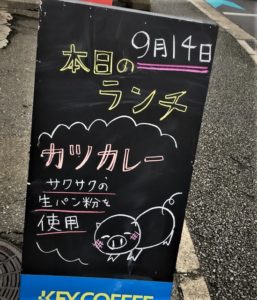 9月14日
本日の
ランチ
カツカレー
サワサクの
生パン粉を
使用
KEY COFFEE